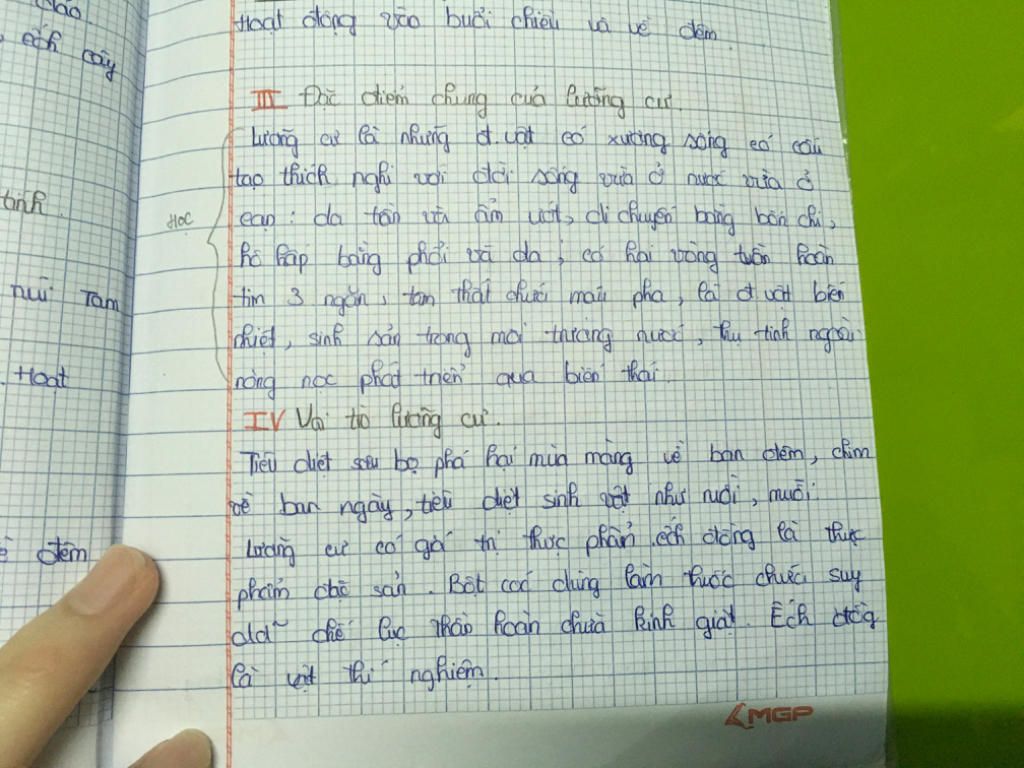 Hoạt động vào buổi chiều và về đêm.
III Đặc điểm chung của lưỡng cư.
Lưỡng cư là những đ.vật có xương sống có cấu
tạo thích nghi với đời sống vừa ở nước vừa ở
cạn: da trần và ẩm ướt, di chuyển bằng bốn chi,
Học
hô hấp bằng phổi và da, có hai vòng tuần hoàn
tim 3 ngăn, tam thất chứa máu pha, là đ.vật biến
nhiệt, sinh sản trong môi trường nước, thụ tinh ngoài
nòng nọc phát triển qua biến thái.
IV Vai trò lưỡng cư.
Tiêu diệt sâu bọ phá hại mùa màng về ban đêm, chim
về ban ngày, tiêu diệt sinh vật như ruồi, muỗi.
Lưỡng cư có giá trị thực phẩn. ếch đồng là thực
phẩm đặc sản. Bột cóc dùng làm thuốc chữa suy
dd~ chế lục thần hoàn chữa kinh giật. Ếch đồng
là vật thí nghiệm.
ếch cây
tính.
núi Tam
. Hoạt
đêm
MGP